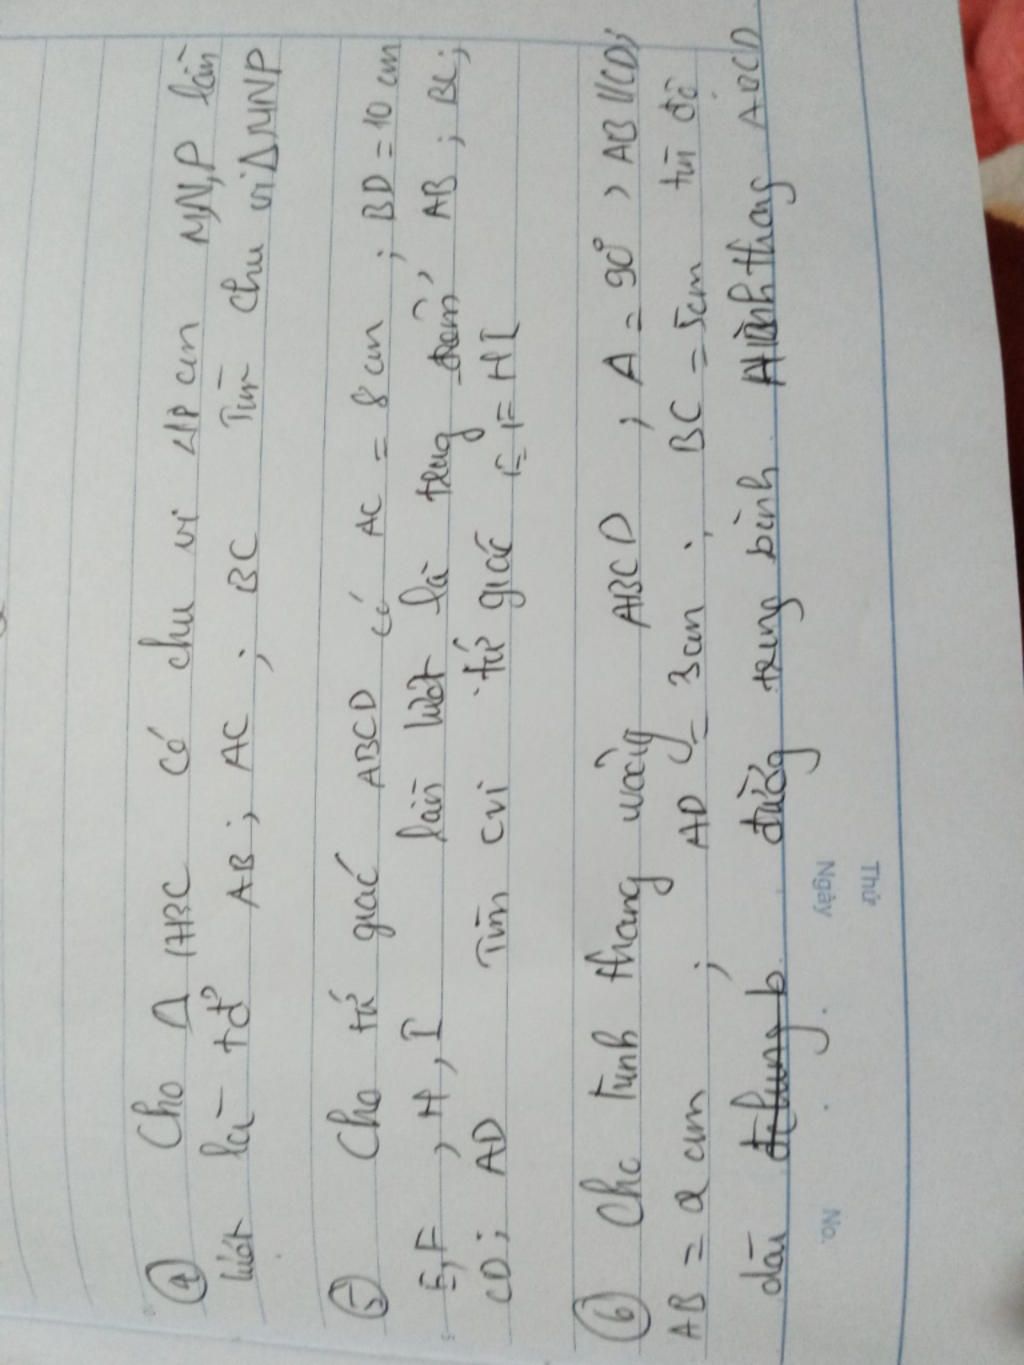 ④ Cho Δ ABC có chu vi cm M,N,P lần
lượt là tđ AB; AC; BC Tìm chu vi Δ MNP
⑤ Cho tứ giác ABCD có AC = 8 cm; BD = 10 cm
E,F,H,I lần lượt là trung điểm, AB; BC;
CD; AD Tìm cvi tứ giác EFHI
⑥ Cho hình thang vuông ABCD; A = 90°, AB//CD;
AB = 2 cm; AD = 3cm; BC = 5cm tìm độ
dài đường trung bình Hình thang ABCD
Thứ
Ngày
No.